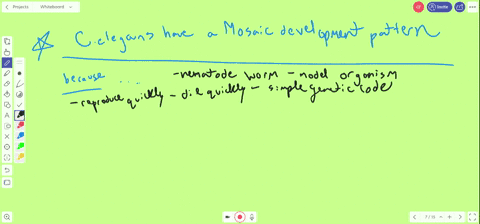 Projects Whiteboard Invite
C.elegans have a Mosaic development pattern
because .... -nematode worm - model organism
- reproduce quickly - die quickly - simple genetic code
7 / 11